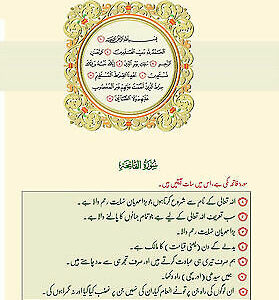 بِسْمِ اللَّهِ الرَّحْمَٰنِ الرَّحِيمِ
الْحَمْدُ لِلَّهِ رَبِّ الْعَالَمِينَ الرَّحْمَٰنِ
الرَّحِيمِ مَالِكِ يَوْمِ الدِّينِ إِيَّاكَ نَعْبُدُ وَإِيَّاكَ
نَسْتَعِينُ اهْدِنَا الصِّرَاطَ الْمُسْتَقِيمَ
صِرَاطَ الَّذِينَ أَنْعَمْتَ عَلَيْهِمْ غَيْرِ الْمَغْضُوبِ
عَلَيْهِمْ وَلَا الضَّالِّينَ
سُورَةُ الفَاتِحَةِ
سورۂ فاتحہ مکی ہے، اس میں سات آیتیں ہیں۔
اللہ تعالیٰ کے نام سے شروع کرتا ہوں جو بڑا مہربان نہایت رحم والا ہے۔
سب تعریف اللہ تعالیٰ کے لیے ہے جو تمام جہانوں کا پالنے والا ہے۔
بڑا مہربان نہایت رحم والا۔
بدلے کے دن (یعنی قیامت) کا مالک ہے۔
ہم صرف تیری ہی عبادت کرتے ہیں اور صرف تجھ ہی سے مدد چاہتے ہیں۔
ہمیں سیدھی (اور سچی) راہ دکھا۔
ان لوگوں کی راہ جن پر تو نے انعام کیا، ان کی نہیں جن پر غضب کیا گیا اور نہ گمراہوں کی۔